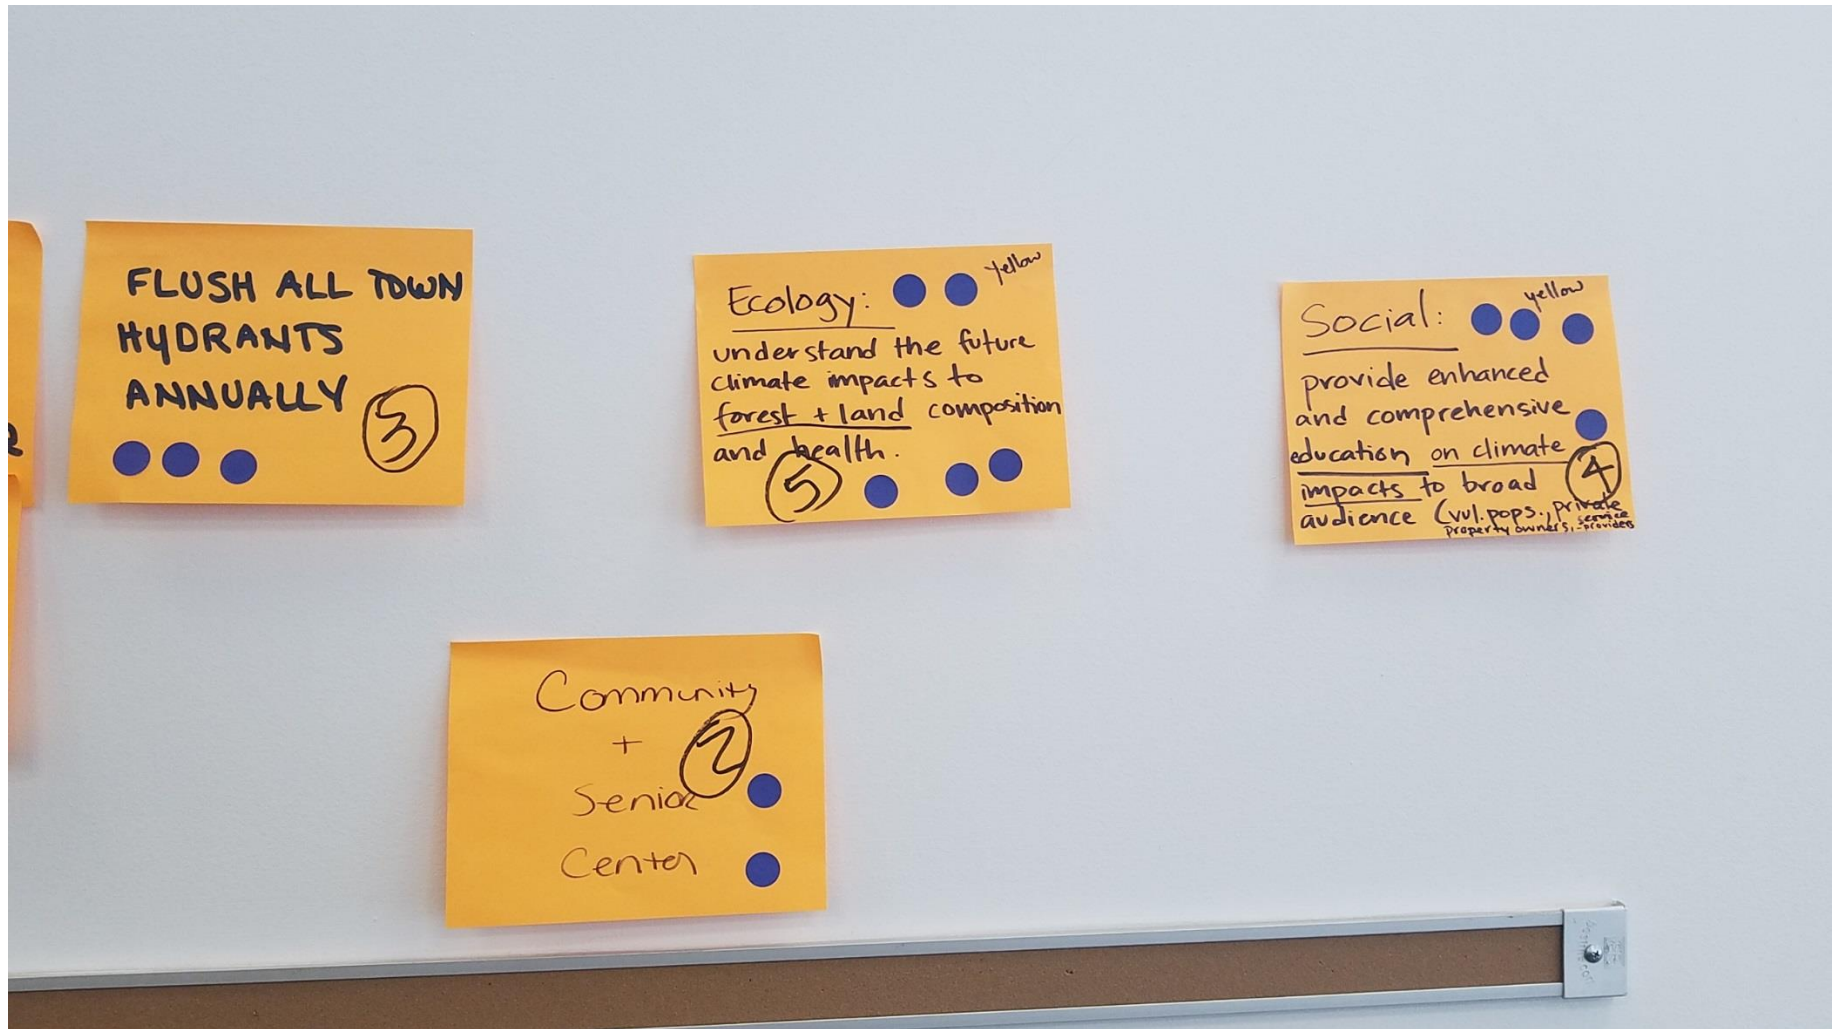 FLUSH ALL TOWN
HYDRANTS
ANNUALLY
3
Ecology:
yellow
understand the future
climate impacts to
forest + land composition
and health.
5
Social:
yellow
provide enhanced
and comprehensive
education on climate
impacts to broad
audience (vul. pops., private
property owners, service
providers
4
Community
+
Senior
Center
2